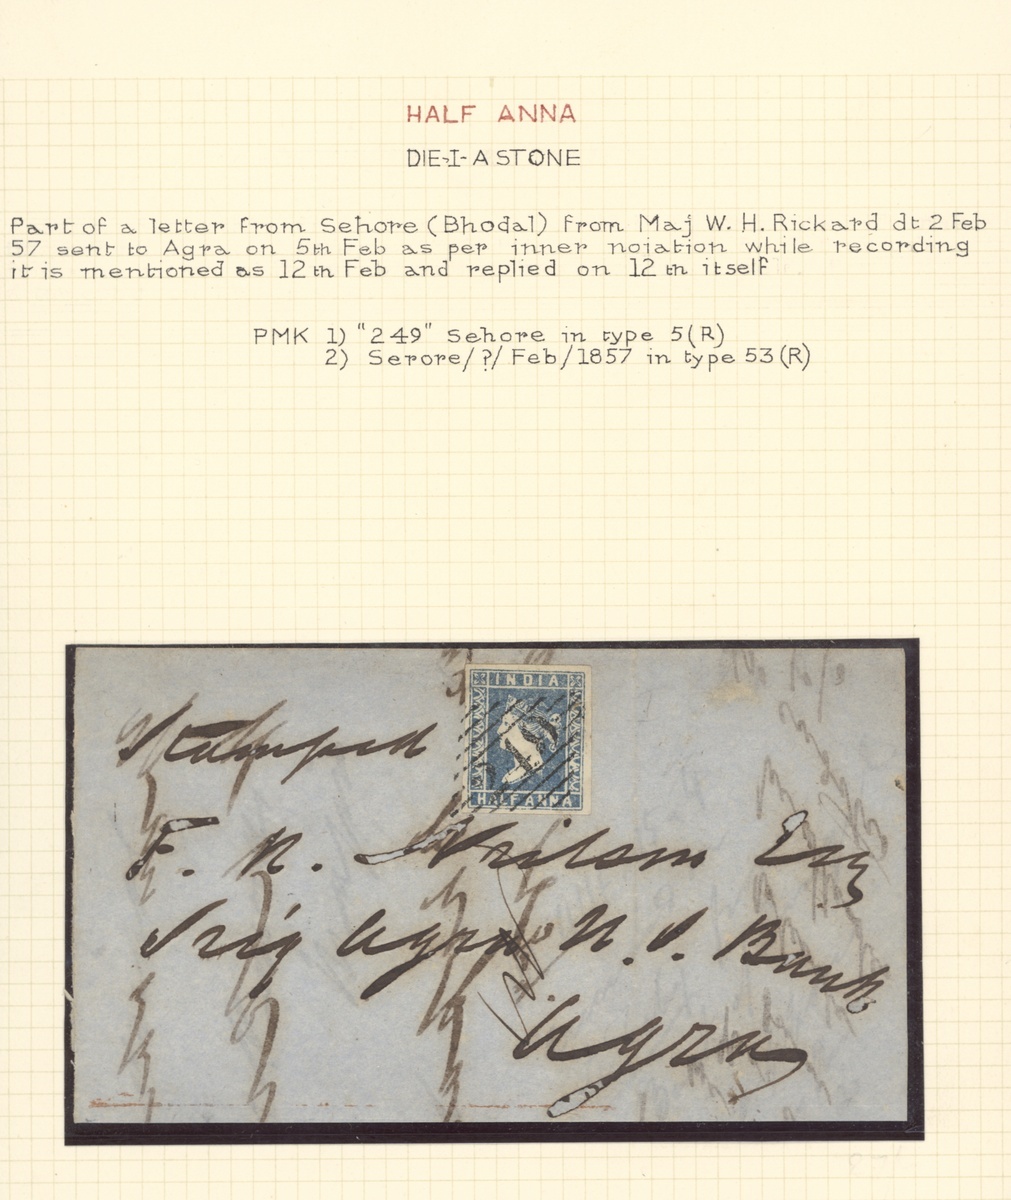 HALF ANNA
DIE-I-A STONE
Part of a letter from Sehore (Bhodal) from Maj W. H. Rickard dt 2 Feb
57 sent to Agra on 5th Feb as per inner noiation while recording
it is mentioned as 12 th Feb and replied on 12 th itself
PMK 1) "249" Sehore in type 5(R)
2) Serore/?/Feb/1857 in type 53(R)
INDIA
Stamped
49
HALF ANNA
F. N. Wilson Esq
Agra U. S. Bank
Agra